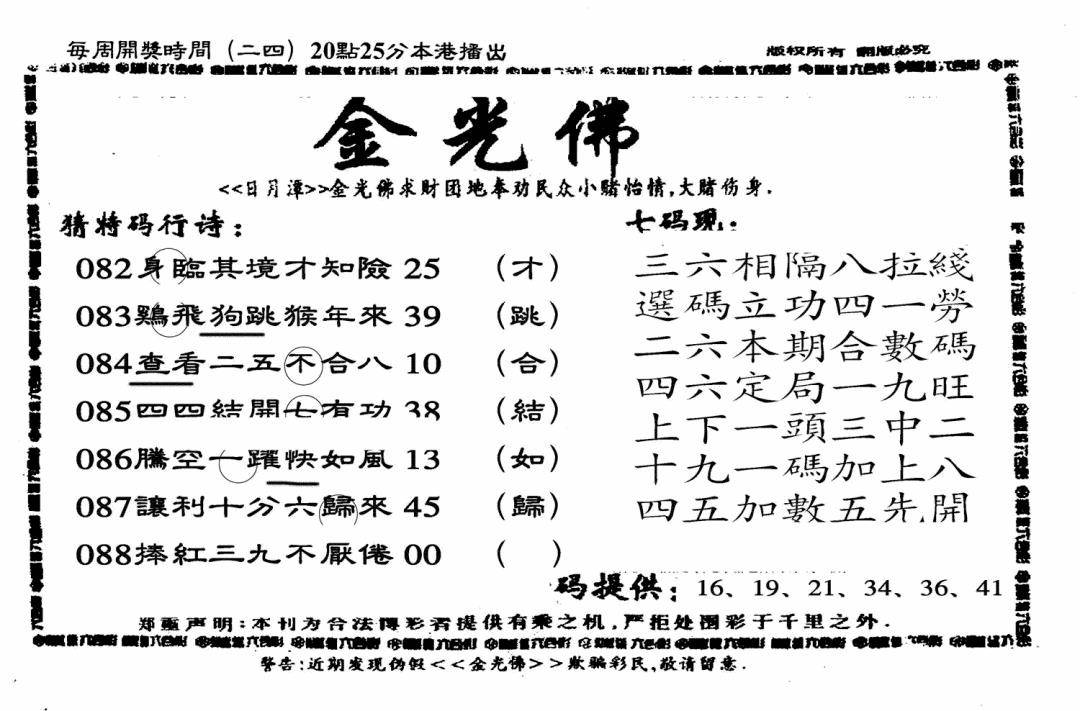 每周開獎時間（二四）20點25分本港播出
版权所有 翻版必究
金光佛
<<日月潭>>金光佛求财团地奉劝民众小赌怡情,大赌伤身.
猜特码行诗：
082身臨其境才知險 25 （才）
083鷄飛狗跳猴年來 39 （跳）
084查看二五不合八 10 （合）
085四四結開七有功 38 （結）
086騰空一躍快如風 13 （如）
087讓利十分六歸來 45 （歸）
088捧紅三九不厭倦 00 （ ）
七码现：
三六相隔八拉綫
選碼立功四一勞
二六本期合數碼
四六定局一九旺
上下一頭三中二
十九一碼加上八
四五加數五先開
码提供：16、19、21、34、36、41
郑重声明:本刊为合法博彩者提供有乘之机,严拒处图彩于千里之外.
警告:近期发现伪假<<金光佛>>欺骗彩民,敬请留意.